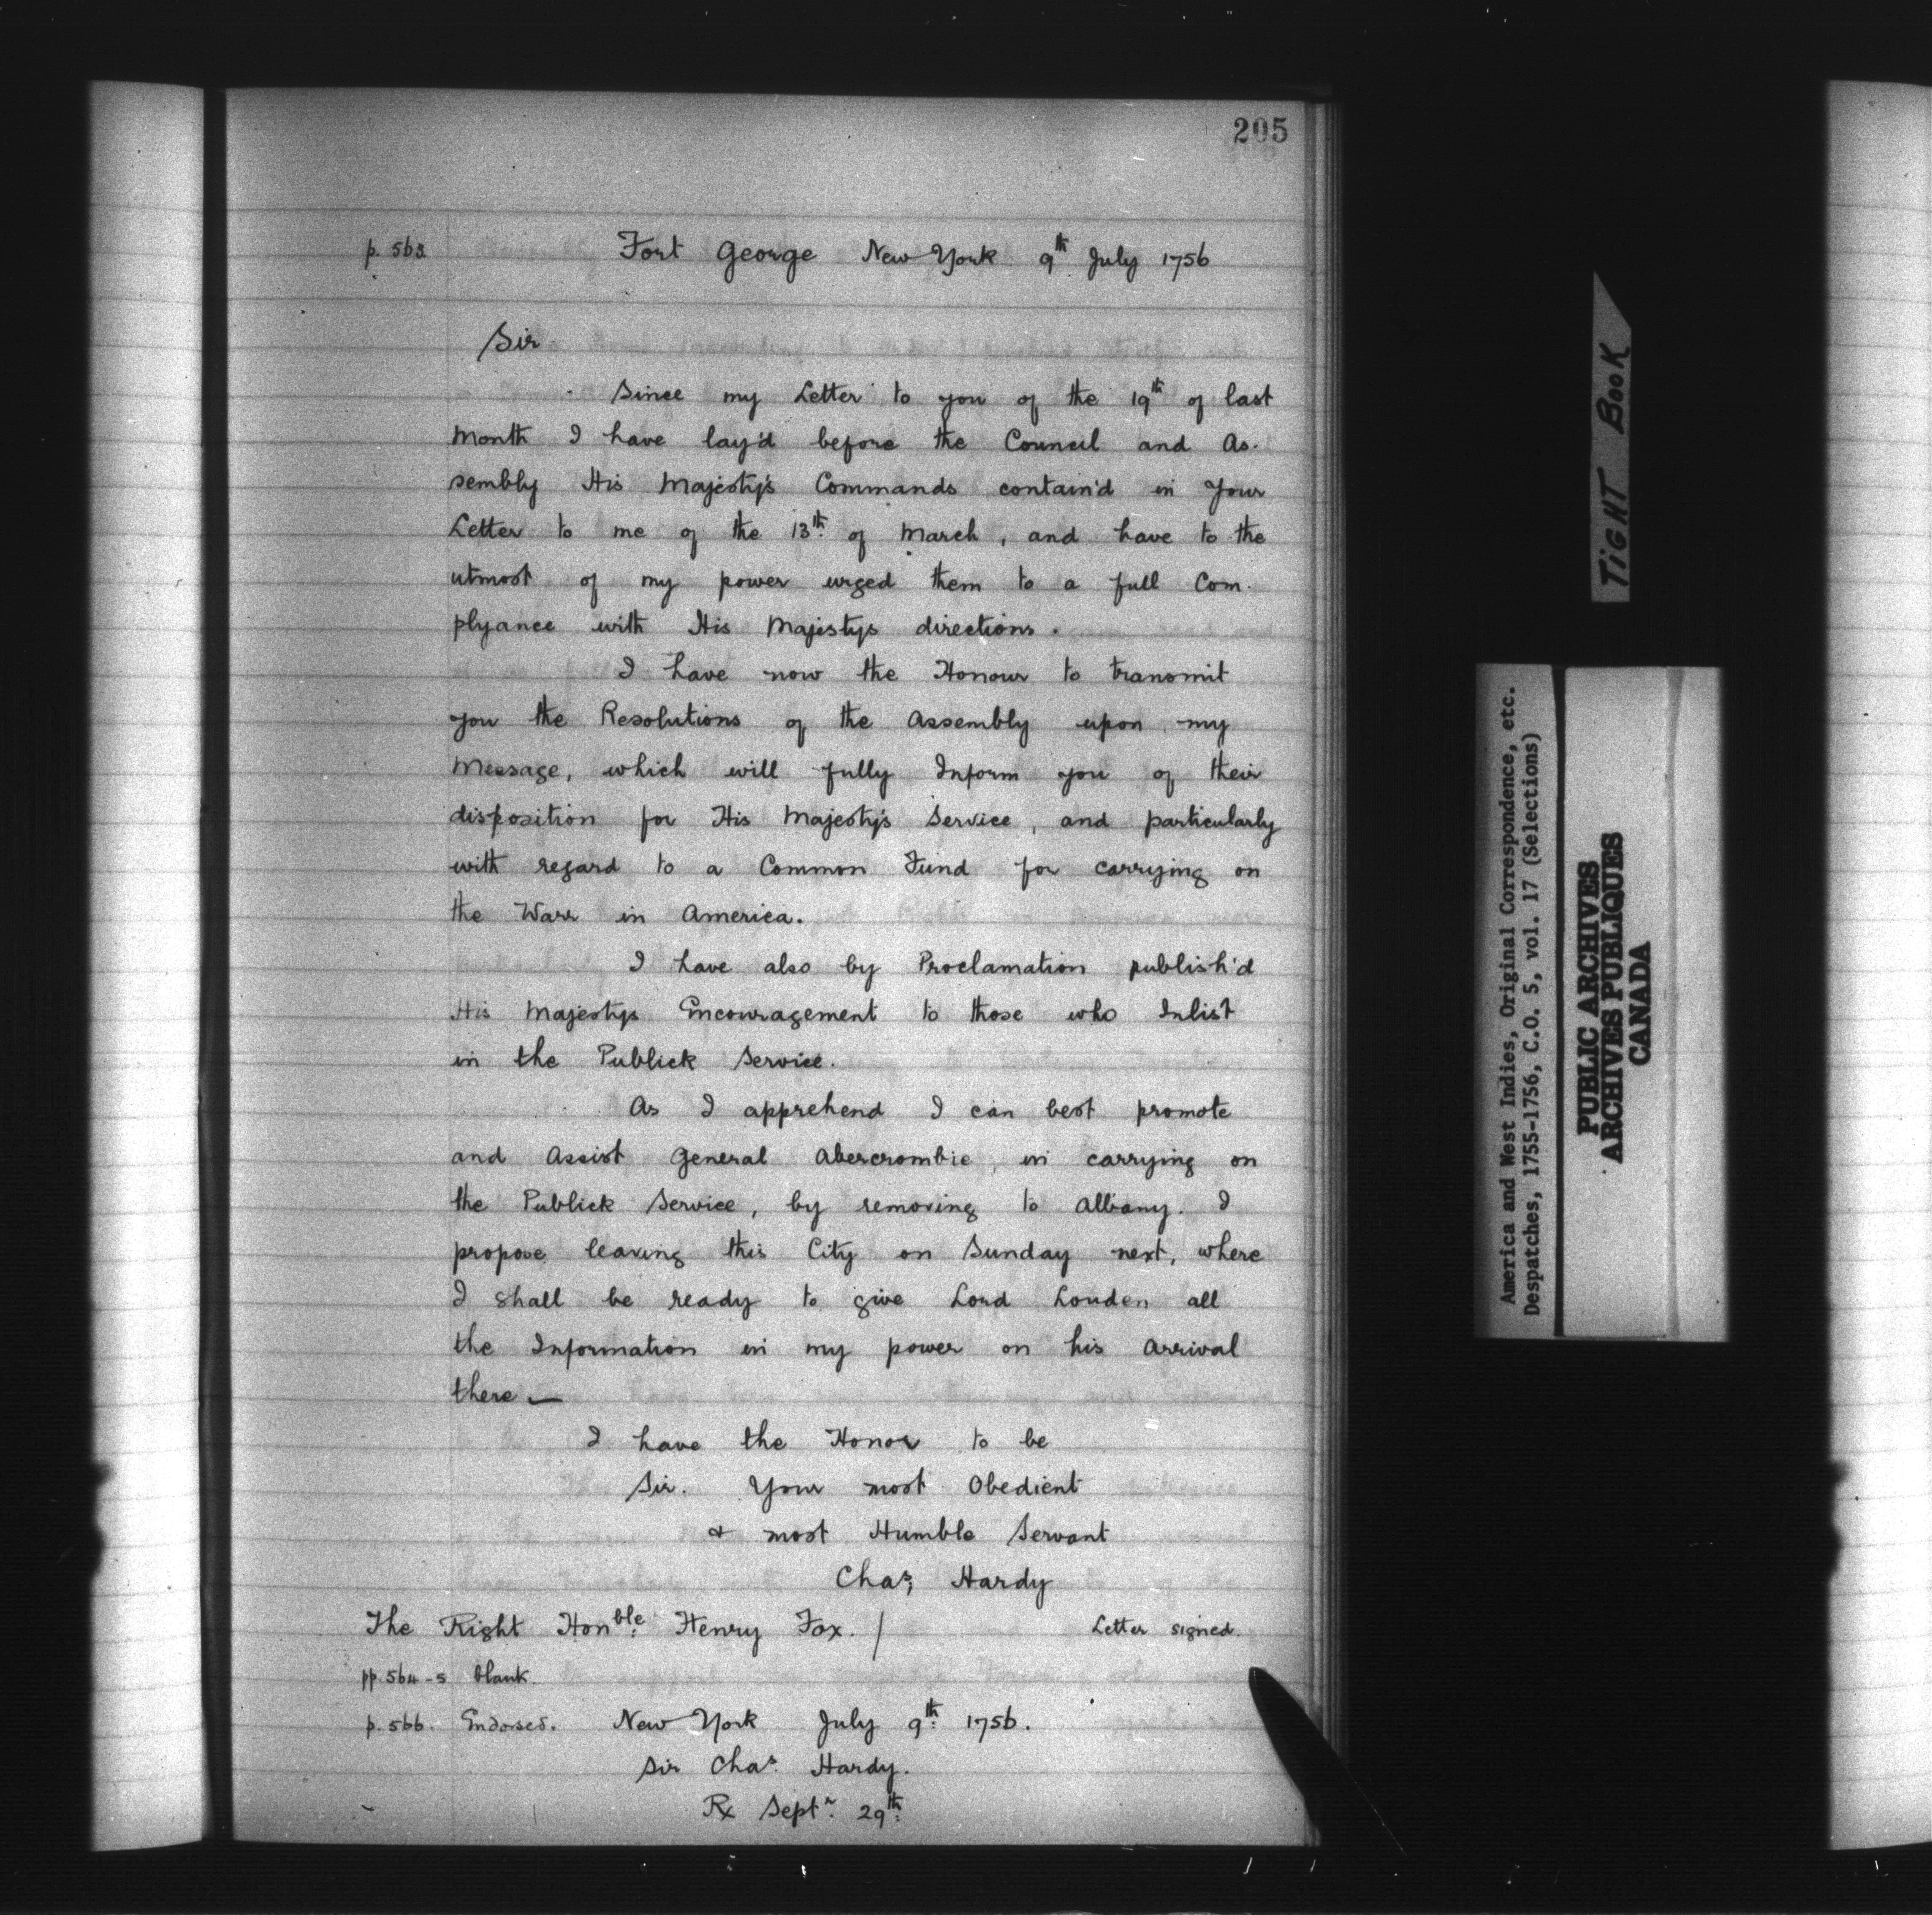 205
p. 563. Fort George New York 9th July 1756
Sir
Since my Letter to you of the 19th of last
Month I have lay'd before the Council and As-
sembly His Majesty's Commands contain'd in Your
Letter to me of the 13th. of March, and have to the
utmost of my power urged them to a full Com-
plyance with His Majestys directions.
I have now the Honour to transmit
you the Resolutions of the Assembly upon my
Message, which will fully Inform you of their
disposition for His Majesty's Service, and particularly
with regard to a Common Fund for carrying on
the Warr in America.
I have also by Proclamation publish'd
His Majestys Encouragement to those who Inlist
in the Publick Service.
As I apprehend I can best promote
and Assist General Abercrombie, in carrying on
the Publick Service, by removing to Albany. I
propose leaving this City on Sunday next, where
I shall be ready to give Lord Louden all
the Information in my power on his Arrival
there —
I have the Honor to be
Sir. Your most Obedient
& most Humble Servant
Chas; Hardy
The Right Honble: Henry Fox. / Letter signed.
pp. 564-5 blank.
p. 566. Endorsed. New York July 9th: 1756.
Sir Chas. Hardy.
Rx Septr. 29th:
TIGHT BOOK
America and West Indies, Original Correspondence, etc.
Despatches, 1755-1756, C.O. 5, vol. 17 (Selections)
PUBLIC ARCHIVES
ARCHIVES PUBLIQUES
CANADA